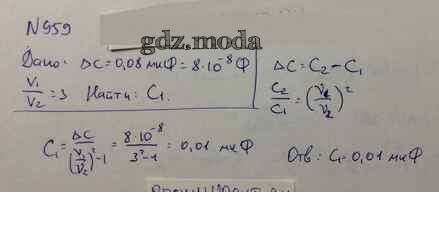 N 959
gdz.moda
Дано: ΔC = 0,08 мкФ = 8·10⁻⁸ Ф
V₁/V₂ = 3 Найти: C₁.
ΔC = C₂ − C₁
C₂/C₁ = (V₁/V₂)²
C₁ = ΔC/((V₁/V₂)² − 1) = 8·10⁻⁸/(3² − 1) = 0,01 мкФ
Отв: C₁ 0,01 мкФ